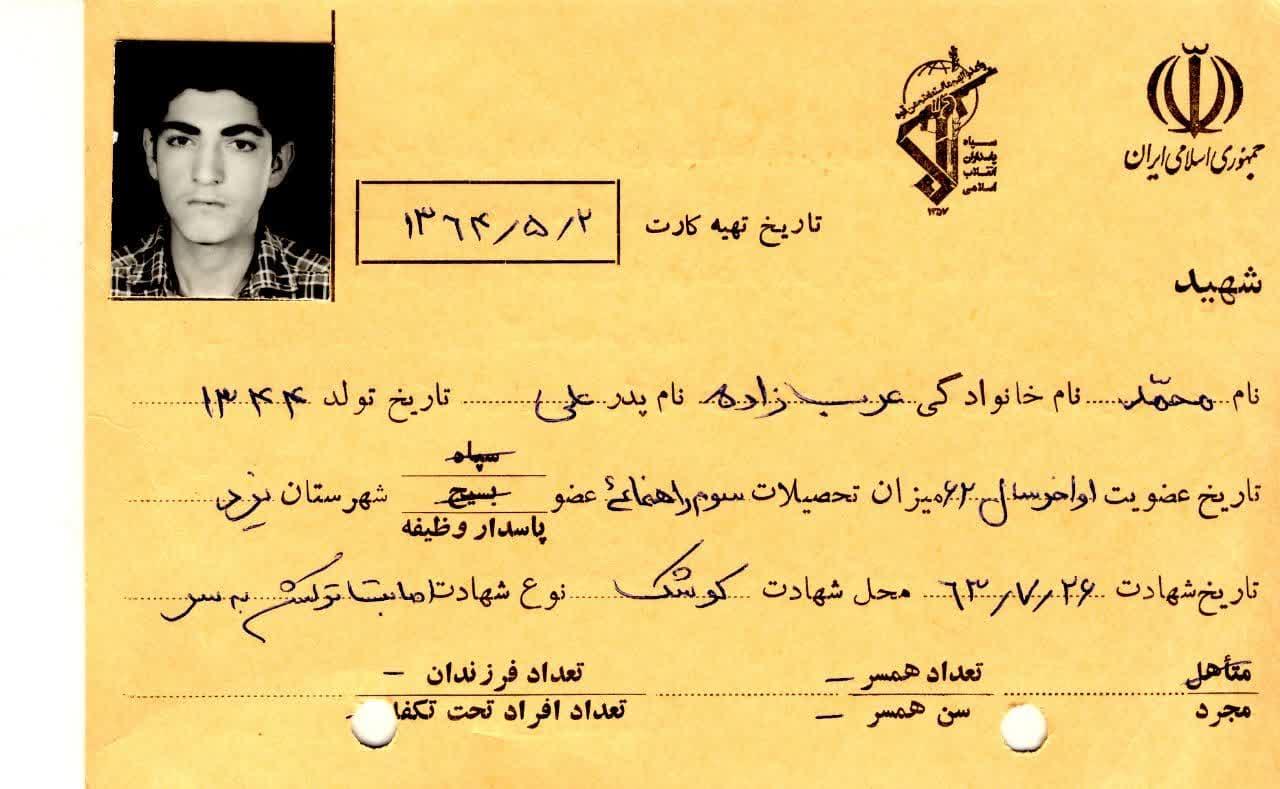 جمهوری اسلامی ایران
سپاه
پاسداران
انقلاب
اسلامی
۱۳۵۷
تاریخ تهیه کارت ۱۳۶۴/۵/۲
شهید
نام محمّد نام خانوادگی عرب زاده نام پدر علی تاریخ تولد ۱۳۴۴
تاریخ عضویت اواخر سال ۶۲ میزان تحصیلات سوم راهنمائی عضو سپاه بسیج پاسدار وظیفه شهرستان یزد
تاریخ شهادت ۶۳/۷/۲۶ محل شهادت کوشک نوع شهادت اصابت ترکش به سر
متأهل تعداد همسر – تعداد فرزندان –
مجرد سن همسر – تعداد افراد تحت –